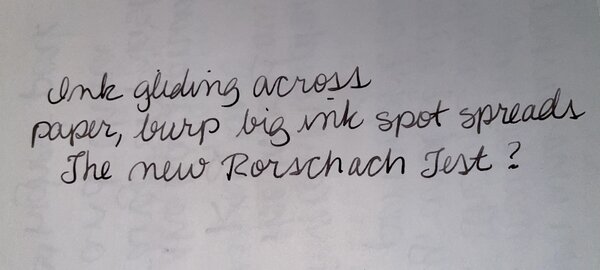 Ink gliding across
paper, burp big ink spot spreads
The new Rorschach Test?